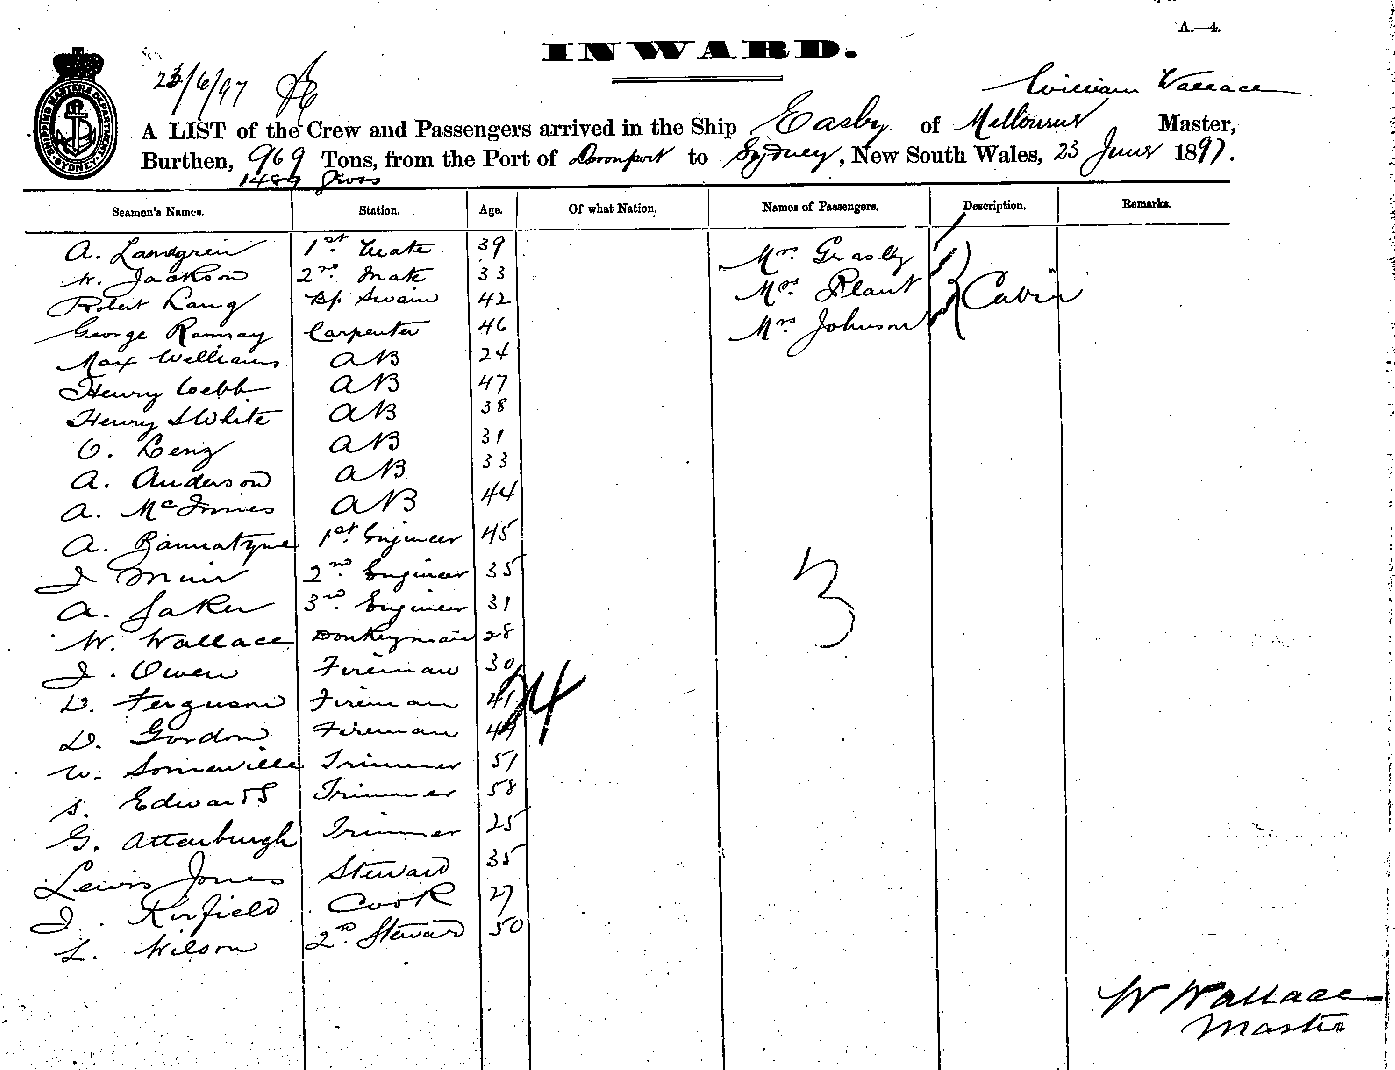 A.—4.
INWARD.
23/6/97
William Wallace
A LIST of the Crew and Passengers arrived in the Ship Easby of Melbourne Master,
Burthen, 969 Tons, from the Port of Devonport to Sydney, New South Wales, 23 June 1897.
1489 Gross
Seamen's Names. Station. Age. Of what Nation. Names of Passengers. Description. Remarks.
A. Landgrein 1st Mate 39 Mrs Grasby
W. Jackson 2nd Mate 33 Mrs Plant 3 Cabin
Robert Laug Bo Swain 42 Mrs Johnson
George Ramsay Carpenter 46
Max Williams AB 24
Henry Webb AB 47
Henry S White AB 38
O. Lenz AB 31
A. Anderson AB 33
A. McInnes AB 44
A. Bannatyne 1st Engineer 45
J Muir 2nd Engineer 35
A. Jaker 3rd Engineer 31
W. Wallace Donkeyman 28
J. Owen Fireman 30
D. Ferguson Fireman 41
D. Gordon Fireman 49
W. Somerville Trimmer 51
S. Edwards Trimmer 58
G. Attenburgh Trimmer 25
Lewis Jones Steward 35
J. Kirfield Cook 27
L. Wilson 2nd Steward 50
3
24
W Wallace
Master